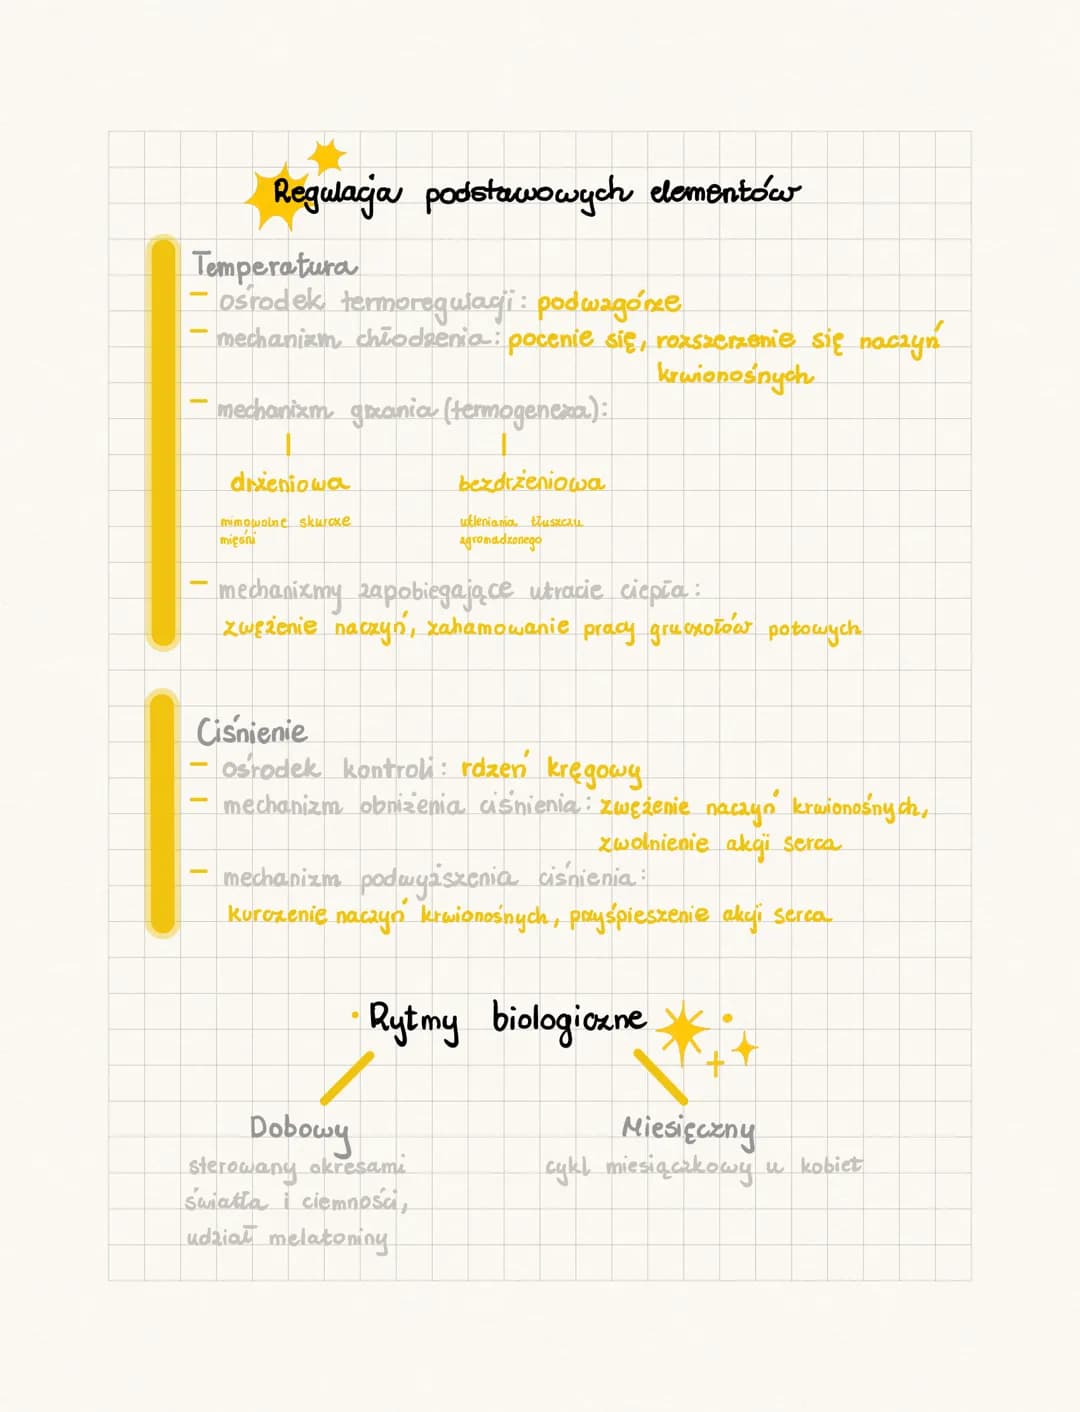 Regulacja podstawowych elementów
Temperatura
- ośrodek termoregulacji: podwzgórze
- mechanizm chłodzenia: pocenie się, rozszerzenie się naczyń
krwionośnych
- mechanizm grzania (termogeneza):
drżeniowa bezdrżeniowa
mimowolne skurcze
mięśni
utleniania tłuszczu
zgromadzonego
- mechanizmy zapobiegające utracie ciepła:
zwężenie naczyń, zahamowanie pracy gruczołów potowych
Ciśnienie
- ośrodek kontroli: rdzeń kręgowy
- mechanizm obniżenia ciśnienia: zwężenie naczyń krwionośnych,
zwolnienie akcji serca
- mechanizm podwyższenia ciśnienia:
kurczenie naczyń krwionośnych, przyśpieszenie akcji serca
Rytmy biologiczne
Dobowy
sterowany okresami
światła i ciemności,
udział melatoniny
Miesięczny
cykl miesiączkowy u kobiet